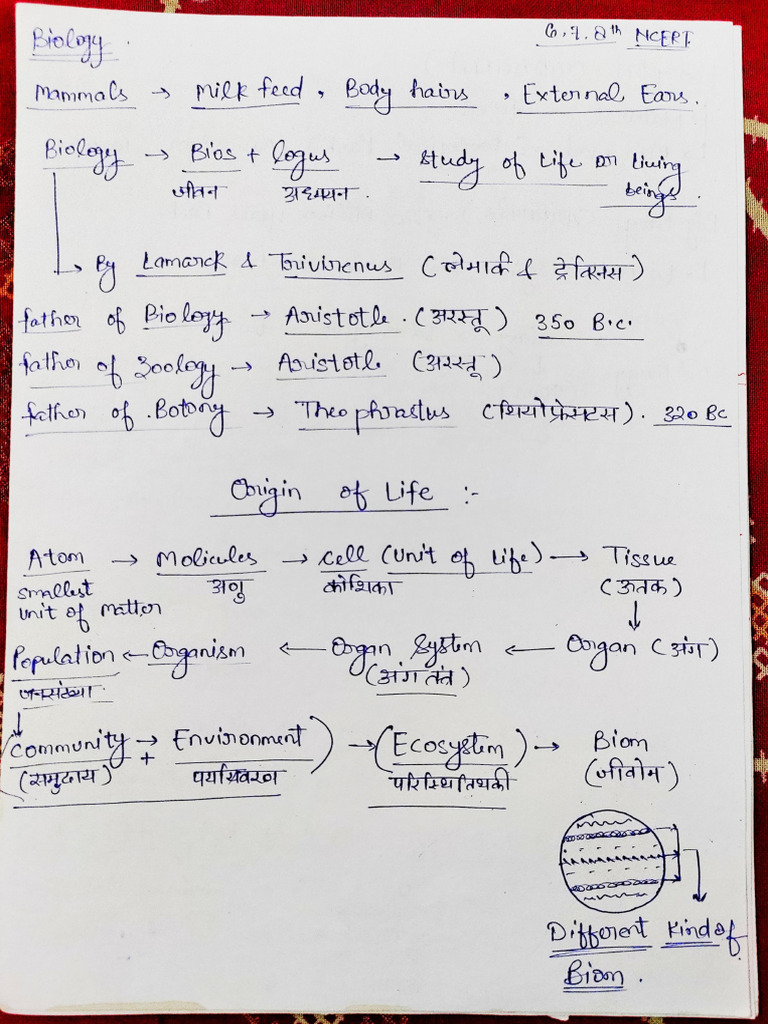 Biology.
6.7.8th NCERT
Mammals → Milk feed, Body hairs, External Ears.
Biology → Bios + logus → Study of Life or living
जीवन अध्ययन. beings.
→ By Lamarck & Trivirenus (लेमार्क & ट्रेविरनस)
father of Biology → Aristotle. (अरस्तू) 350 B.C.
father of Zoology → Aristotle (अरस्तू)
father of Botony → Theophrastus (थियोफ्रेस्टस). 320 BC
Origin of Life :-
Atom → Molicules → Cell (Unit of Life) → Tissue
smallest अणु कोशिका (ऊतक)
unit of matter
Population ← Organism ← Organ System ← Organ (अंग)
जनसंख्या (अंग तंत्र)
(Community → + Environment) → (Ecosystem) → Biom
(समुदाय) पर्यावरण परिस्थितिथकी (जीवोम)
Different Kind of
Biom.